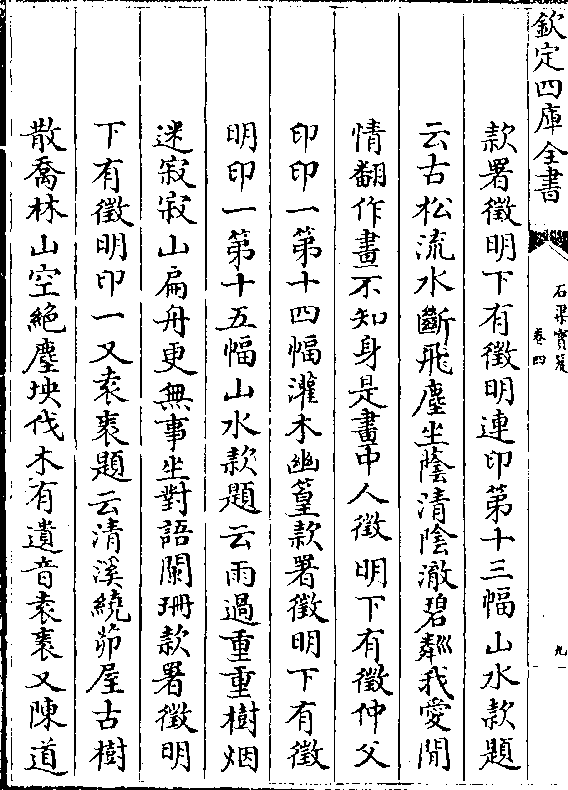 欽定四庫全書
石渠寳笈
卷四
九
款署徵明下有徵明連印第十三幅山水款題
云古松流水斷飛塵坐蔭清陰澈碧粼我愛閒
情翻作畫不知身是畫中人徵明下有徵仲父
印印一第十四幅灌木幽篁款署徵明下有徵
明印一第十五幅山水款題云雨過重重樹烟
迷寂寂山扁舟更無事坐對語闌珊款署徵明
下有徵明印一又袁袠題云清溪繞茆屋古樹
散喬林山空絶塵坱伐木有遺音袁袠又陳道